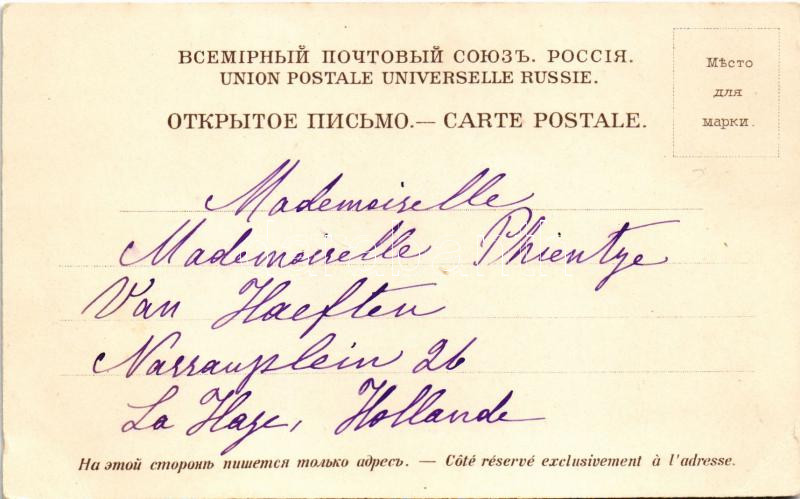 ВСЕМІРНЫЙ ПОЧТОВЫЙ СОЮЗЪ. РОССІЯ.
UNION POSTALE UNIVERSELLE RUSSIE.
ОТКРЫТОЕ ПИСЬМО.— CARTE POSTALE.
Мѣсто
для
марки.
Mademoiselle
Mademoiselle Phientye
Van Haeften
Nassauplein 26
La Haye, Hollande
На этой сторонѣ пишется только адресъ. — Côté réservé exclusivement à l'adresse.